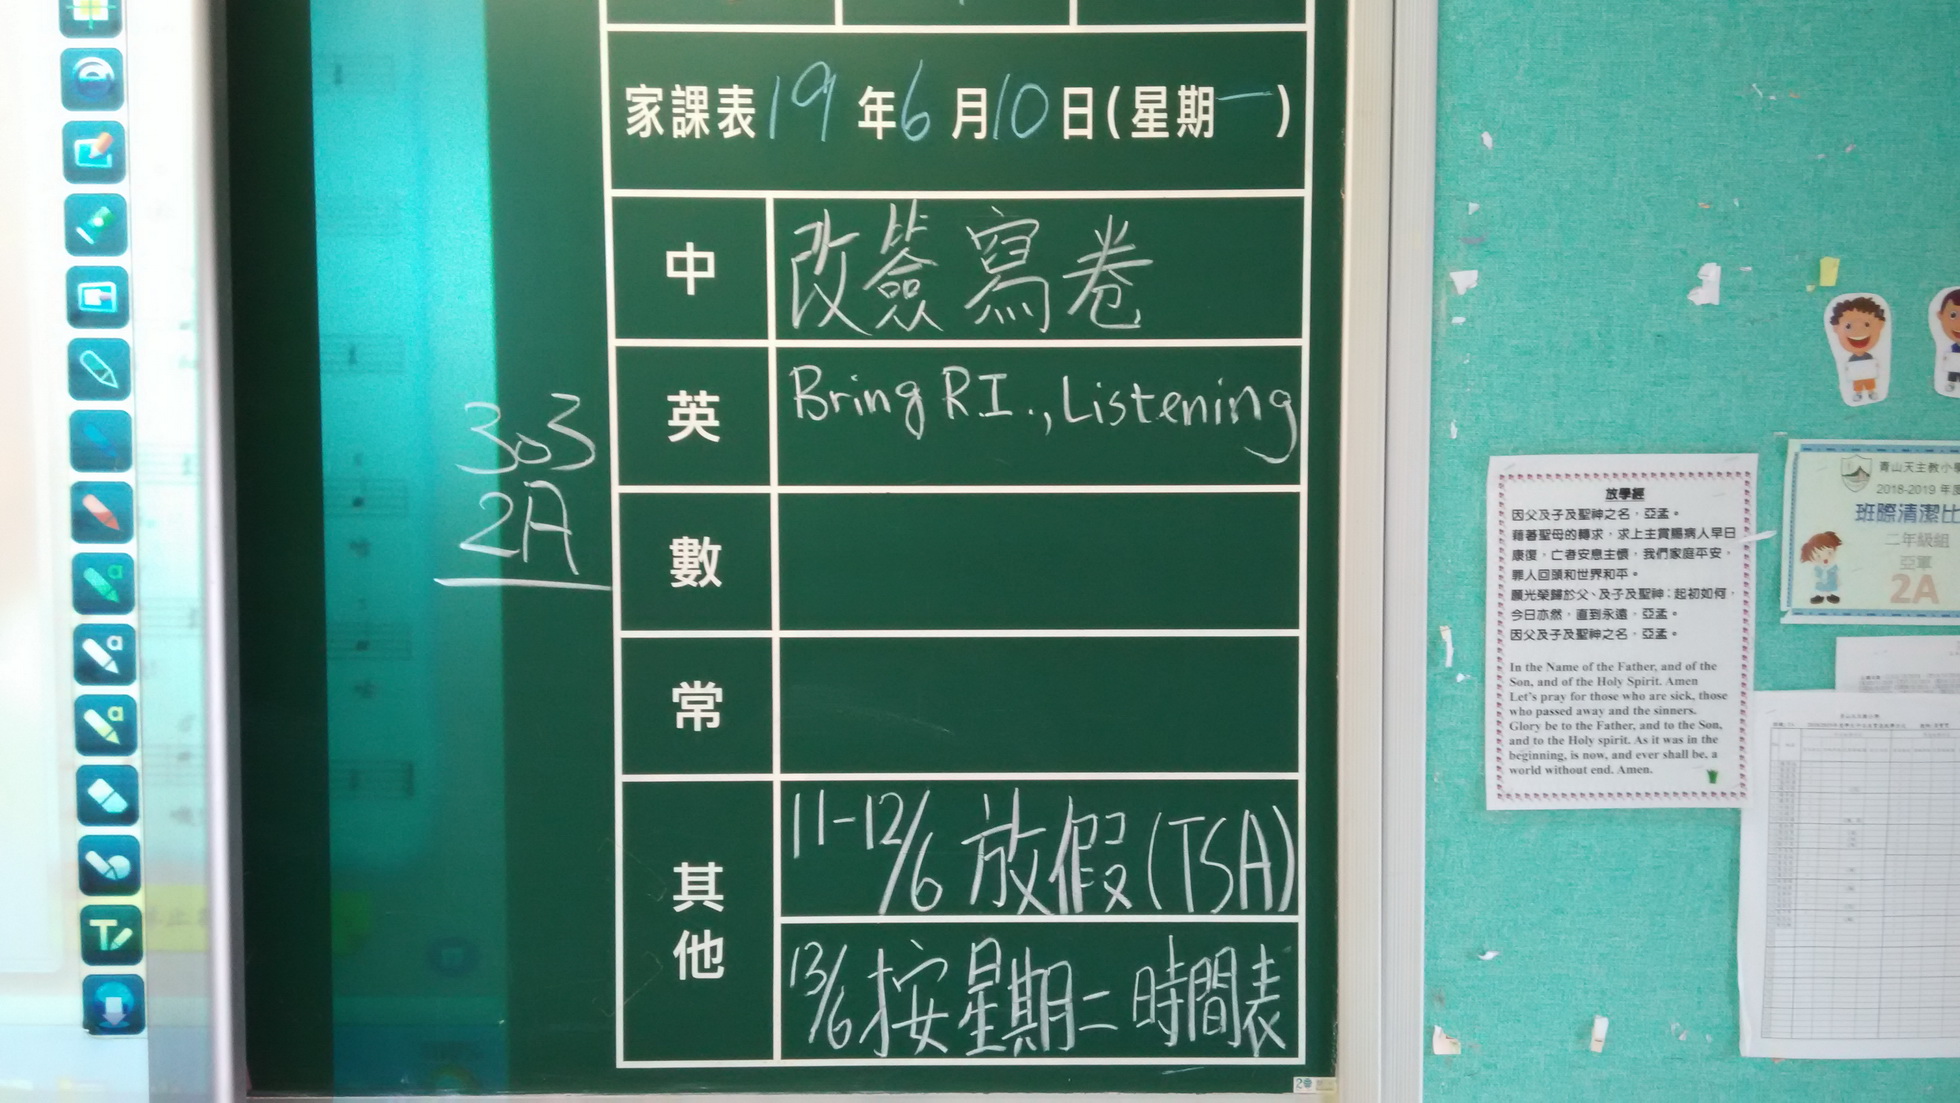 家課表19年6月10日(星期一)
中
改簽寫卷
英
Bring R.I., Listening
數
常
其他
11-12/6 放假(TSA)
13/6 按星期二時間表
303
2A
放學經
因父及子及聖神之名，亞孟。
藉著聖母的轉求，求上主賞賜病人早日
康復，亡者安息主懷，我們家庭平安，
罪人回頭和世界和平。
願光榮歸於父、及子及聖神；起初如何，
今日亦然，直到永遠，亞孟。
因父及子及聖神之名，亞孟。
In the Name of the Father, and of the
Son, and of the Holy Spirit. Amen
Let's pray for those who are sick, those
who passed away and the sinners.
Glory be to the Father, and to the Son,
and to the Holy spirit. As it was in the
beginning, is now, and ever shall be, a
world without end. Amen.
青山天主教小學
2018-2019 年度
班際清潔比
二年級組
亞軍
2A